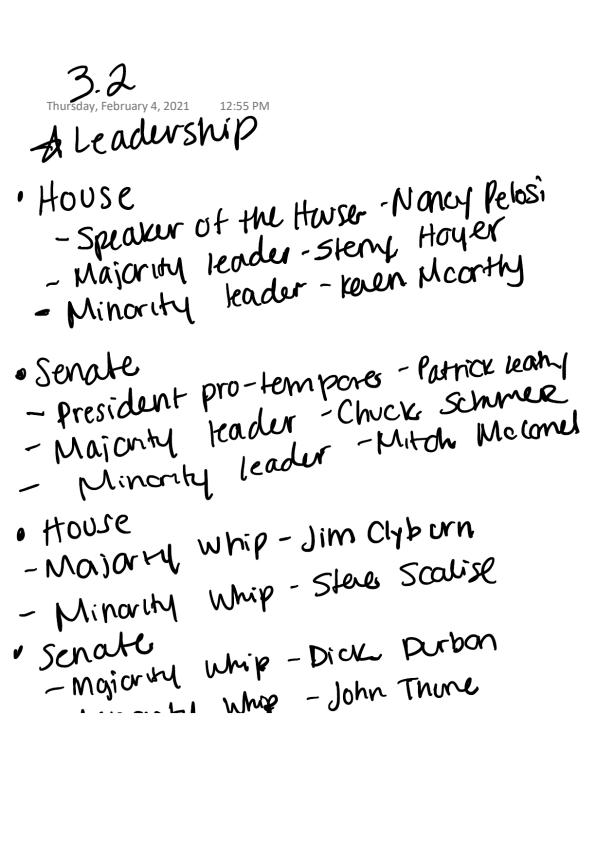 3.2
Thursday, February 4, 2021 12:55 PM
☆ Leadership
• House
- Speaker of the House - Nancy Pelosi
- Majority leader - Steny Hoyer
- Minority leader - Keven Mccrthy
• Senate
- President pro-tempores - Patrick Leahy
- Majority leader - Chuck Schumer
- Minority leader - Mitch McConel
• House
- Majority whip - Jim Clyburn
- Minority Whip - Steve Scalise
• Senate
- Majority whip - Dick Durban
- Minority Whip - John Thune